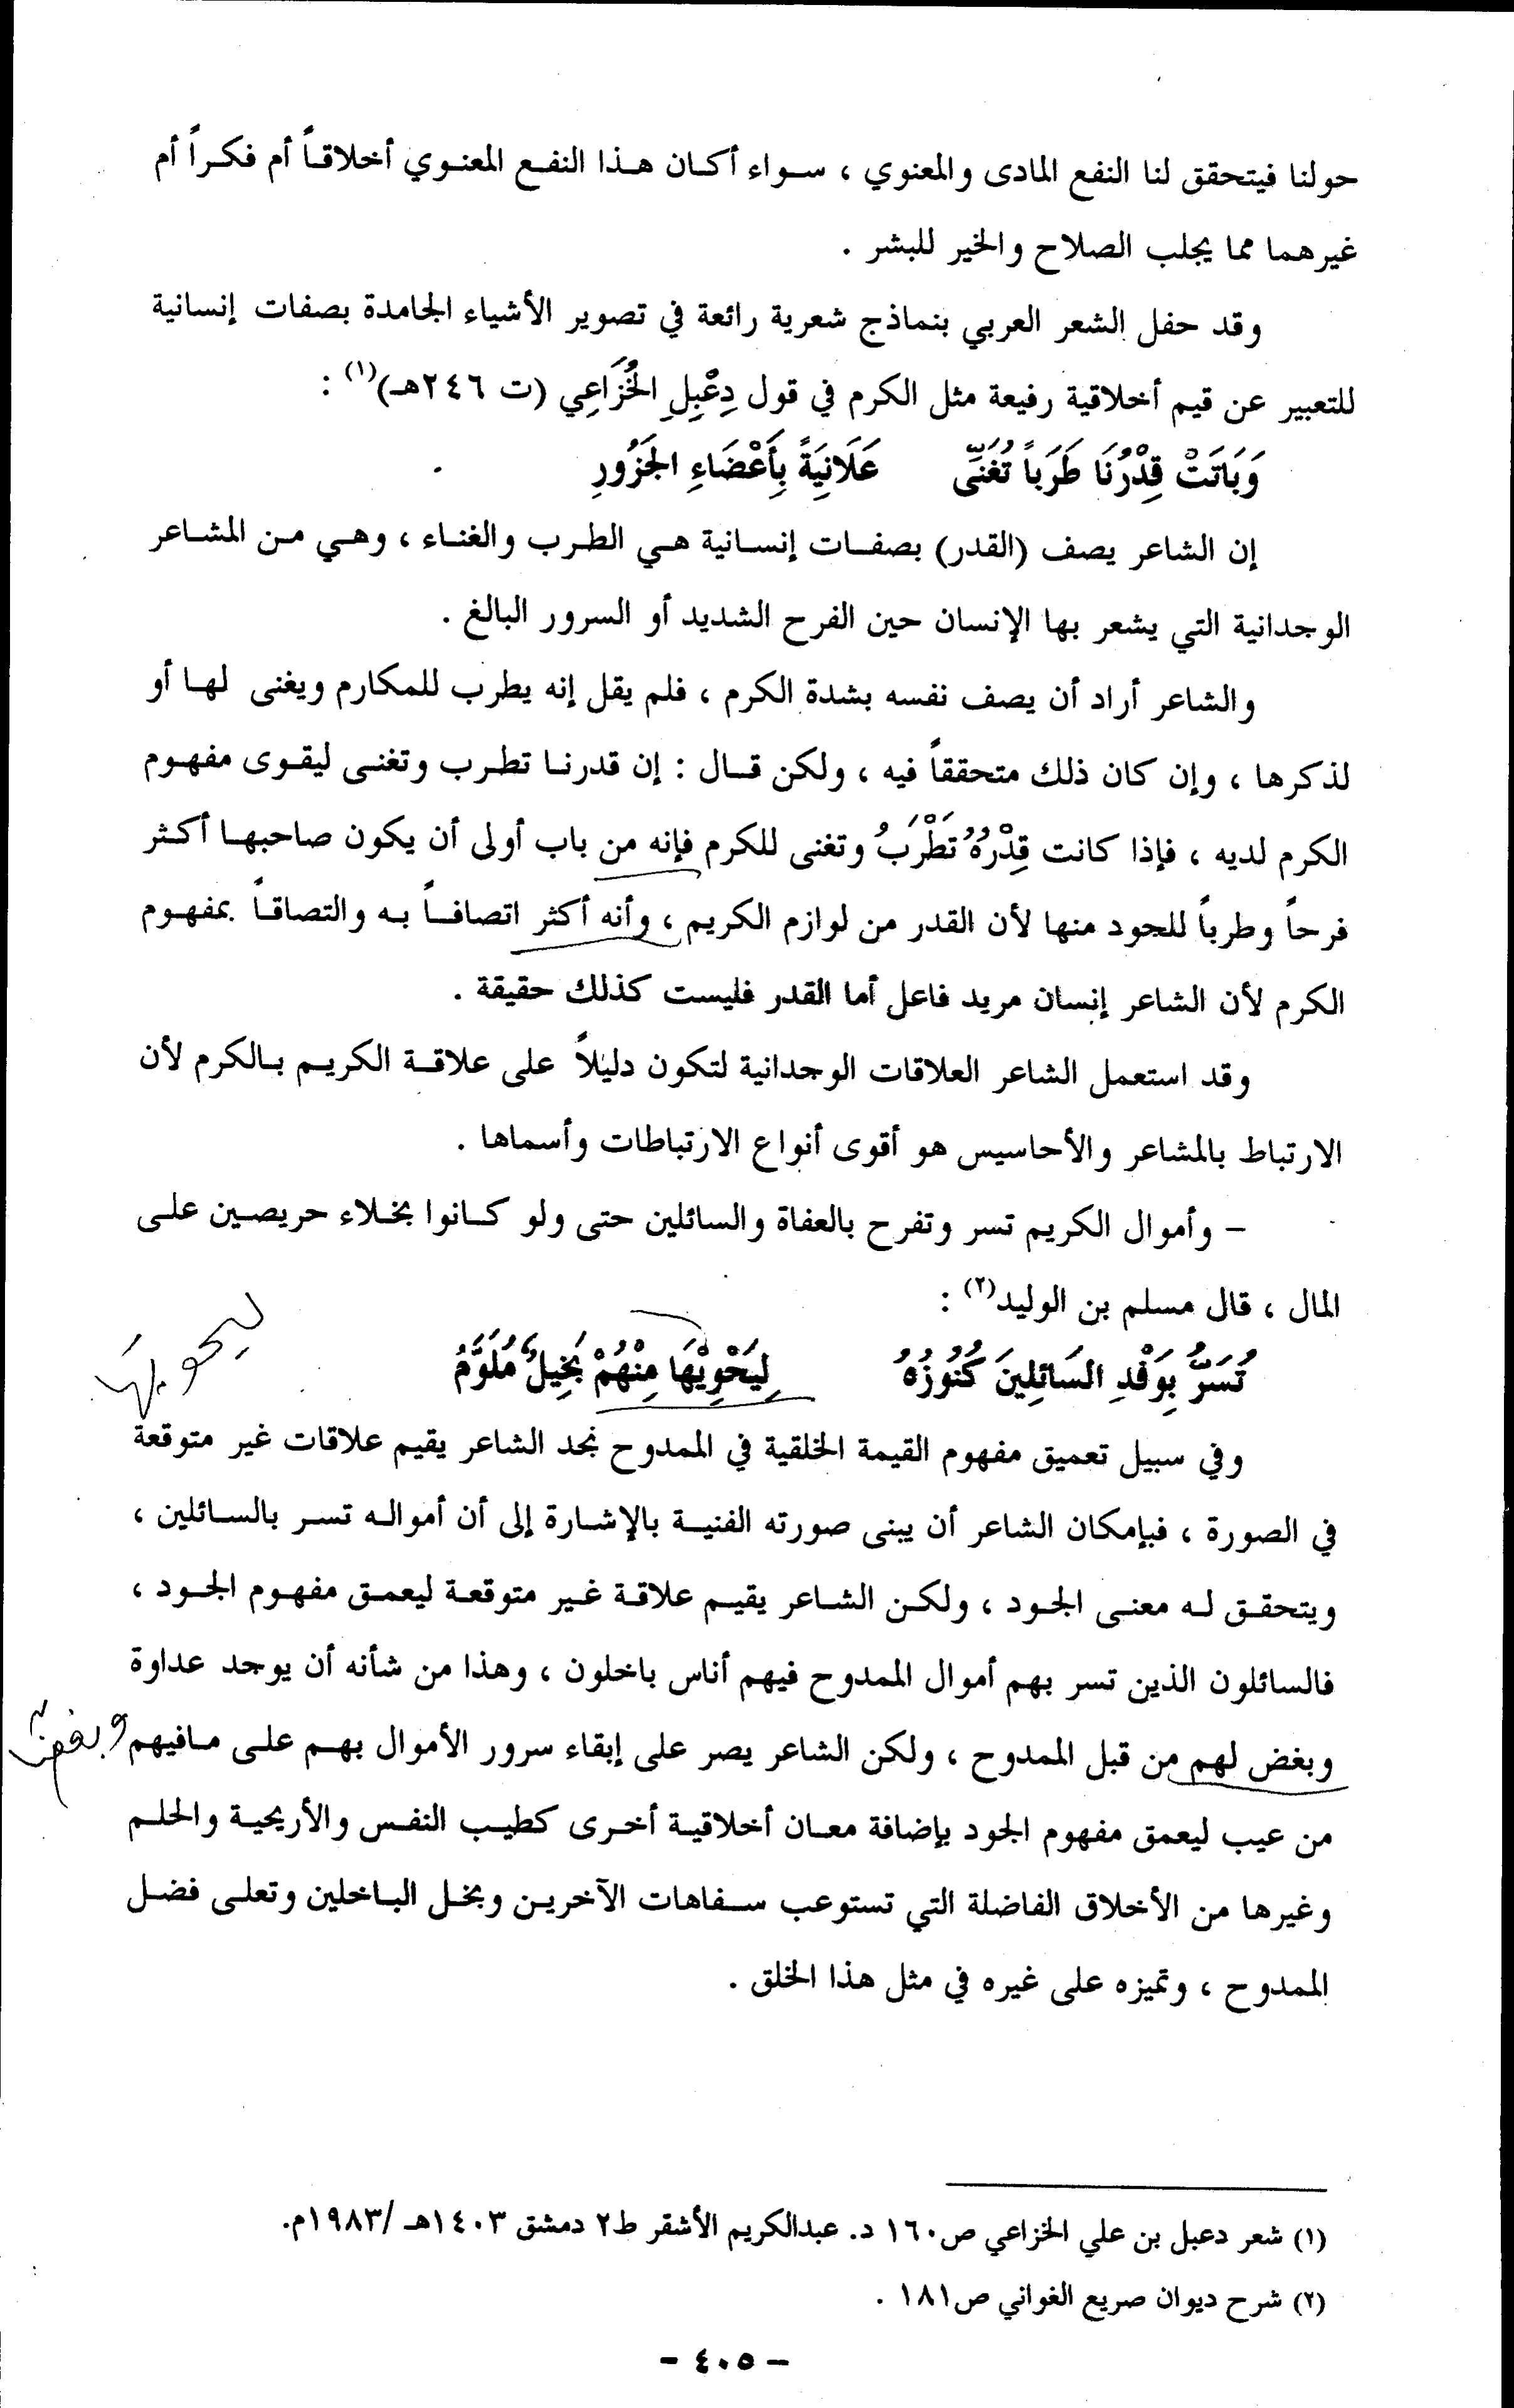 حولنا فيتحقق لنا النفع المادى والمعنوي ، سواء أكان هذا النفع المعنوي أخلاقاً أم فكراً أم
غيرهما مما يجلب الصلاح والخير للبشر .
وقد حفل الشعر العربي بنماذج شعرية رائعة في تصوير الأشياء الجامدة بصفات إنسانية
للتعبير عن قيم أخلاقية رفيعة مثل الكرم في قول دِعْبِلِ الخُزَاعِي (ت ٢٤٦هـ)(١) :
وَبَاتَتْ قِدْرُنَا طَرَباً تُغَنِّى عَلَانِيَةً بِأَعْضَاءِ الجَزُورِ
إن الشاعر يصف (القدر) بصفات إنسانية هي الطرب والغناء ، وهي من المشاعر
الوجدانية التي يشعر بها الإنسان حين الفرح الشديد أو السرور البالغ .
والشاعر أراد أن يصف نفسه بشدة الكرم ، فلم يقل إنه يطرب للمكارم ويغنى لها أو
لذكرها ، وإن كان ذلك متحققاً فيه ، ولكن قال : إن قدرنا تطرب وتغنى ليقوى مفهوم
الكرم لديه ، فإذا كانت قِدْرُهُ تَطْرَبُ وتغنى للكرم فإنه من باب أولى أن يكون صاحبها أكثر
فرحاً وطرباً للجود منها لأن القدر من لوازم الكريم ، وأنه أكثر اتصافاً به والتصاقاً بمفهوم
الكرم لأن الشاعر إنسان مريد فاعل أما القدر فليست كذلك حقيقة .
وقد استعمل الشاعر العلاقات الوجدانية لتكون دليلاً على علاقة الكريم بالكرم لأن
الارتباط بالمشاعر والأحاسيس هو أقوى أنواع الارتباطات وأسماها .
– وأموال الكريم تسر وتفرح بالعفاة والسائلين حتى ولو كانوا بخلاء حريصين على
المال ، قال مسلم بن الوليد(٢) :
ليحويها
تُسَرُّ بِوَفْدِ السَائِلِينَ كُنُوزُهُ لِيَحْوِيْهَا مِنْهُمْ بَخِيلٌ مُلَوَّمُ
وفي سبيل تعميق مفهوم القيمة الخلقية في الممدوح نجد الشاعر يقيم علاقات غير متوقعة
في الصورة ، فبإمكان الشاعر أن يبنى صورته الفنية بالإشارة إلى أن أمواله تسر بالسائلين ،
ويتحقق له معنى الجود ، ولكن الشاعر يقيم علاقة غير متوقعة ليعمق مفهوم الجود ،
فالسائلون الذين تسر بهم أموال الممدوح فيهم أناس باخلون ، وهذا من شأنه أن يوجد عداوة
وبغض لهم من قبل الممدوح ، ولكن الشاعر يصر على إبقاء سرور الأموال بهم على مافيهم
من عيب ليعمق مفهوم الجود بإضافة معان أخلاقية أخرى كطيب النفس والأريحية والحلم
وغيرها من الأخلاق الفاضلة التي تستوعب سفاهات الآخرين وبخل الباخلين وتعلى فضل
الممدوح ، وتميزه على غيره في مثل هذا الخلق .
(١) شعر دعبل بن علي الخزاعي ص١٦٠ د. عبدالكريم الأشقر ط٢ دمشق ١٤٠٣هـ /١٩٨٣م.
(٢) شرح ديوان صريع الغواني ص١٨١ .
– ٤٠٥ –